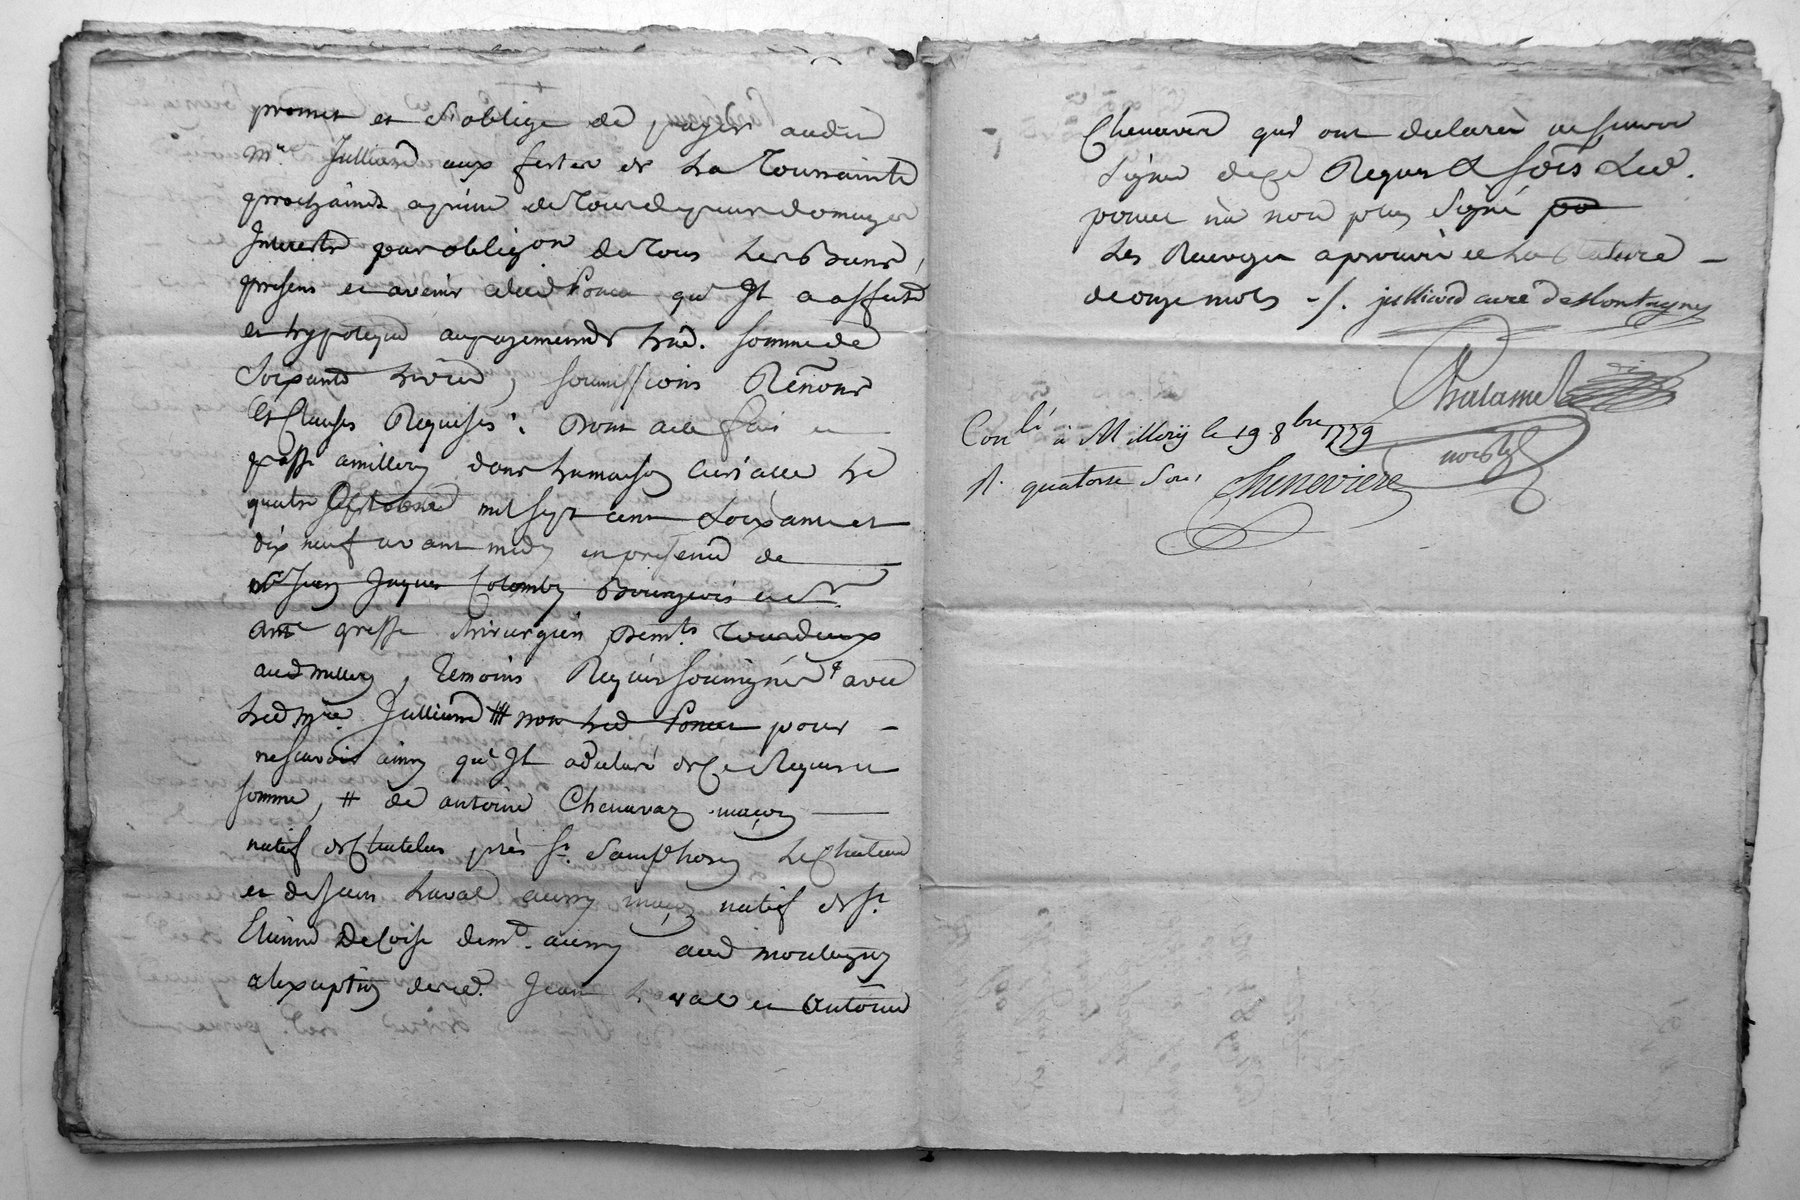 promet et s'oblige de payer audit
Mre Julliard aux festes de la Toussainte
prochaines, a peine de tous depens domages
Interests par obligon de tous ses Biens,
presens et avenir dud Poncet qu'Il a affecté
et hypotequé au payement de lad. somme de
Soixante livres, soumissions Renons
Et Clauses Requises. Dont acte fait et
passé a millery dans la maison Curialle le
quatre Octobre mil sept cent soixante et
dix neuf avant midy en presence de
Sr Jean Jaques Colomby Bourgeois et Sr
Ane gresse chirurgien demts tous deux
aud millery, temoins Requis soussignés avec
led mre Julliard # non led Poncet pour
ne scavoir ainsy qu'Il a declaré de ce Requis et
sommé, # de antoine Chenavaz maçon
natif de Chatelus près St. Simphorien Le Chateau
et de Jean Laval aussy maçon natif de St.
Etienne De Coise demt. aussy aud montagny
a l'exception desd. Jean Laval et Antoine
Chenavard qui ont declarés ne scavoir
signer de ce Requis & soés Led.
poncet n'a non plus signé po
Les Renvoyes aprouvé et la Rature
de onze mots ./. julliard curé de Montagny
Chalamel
Conlé à Millery le 19 8bre 1779
R. quatorse sous
noire
Chenevière